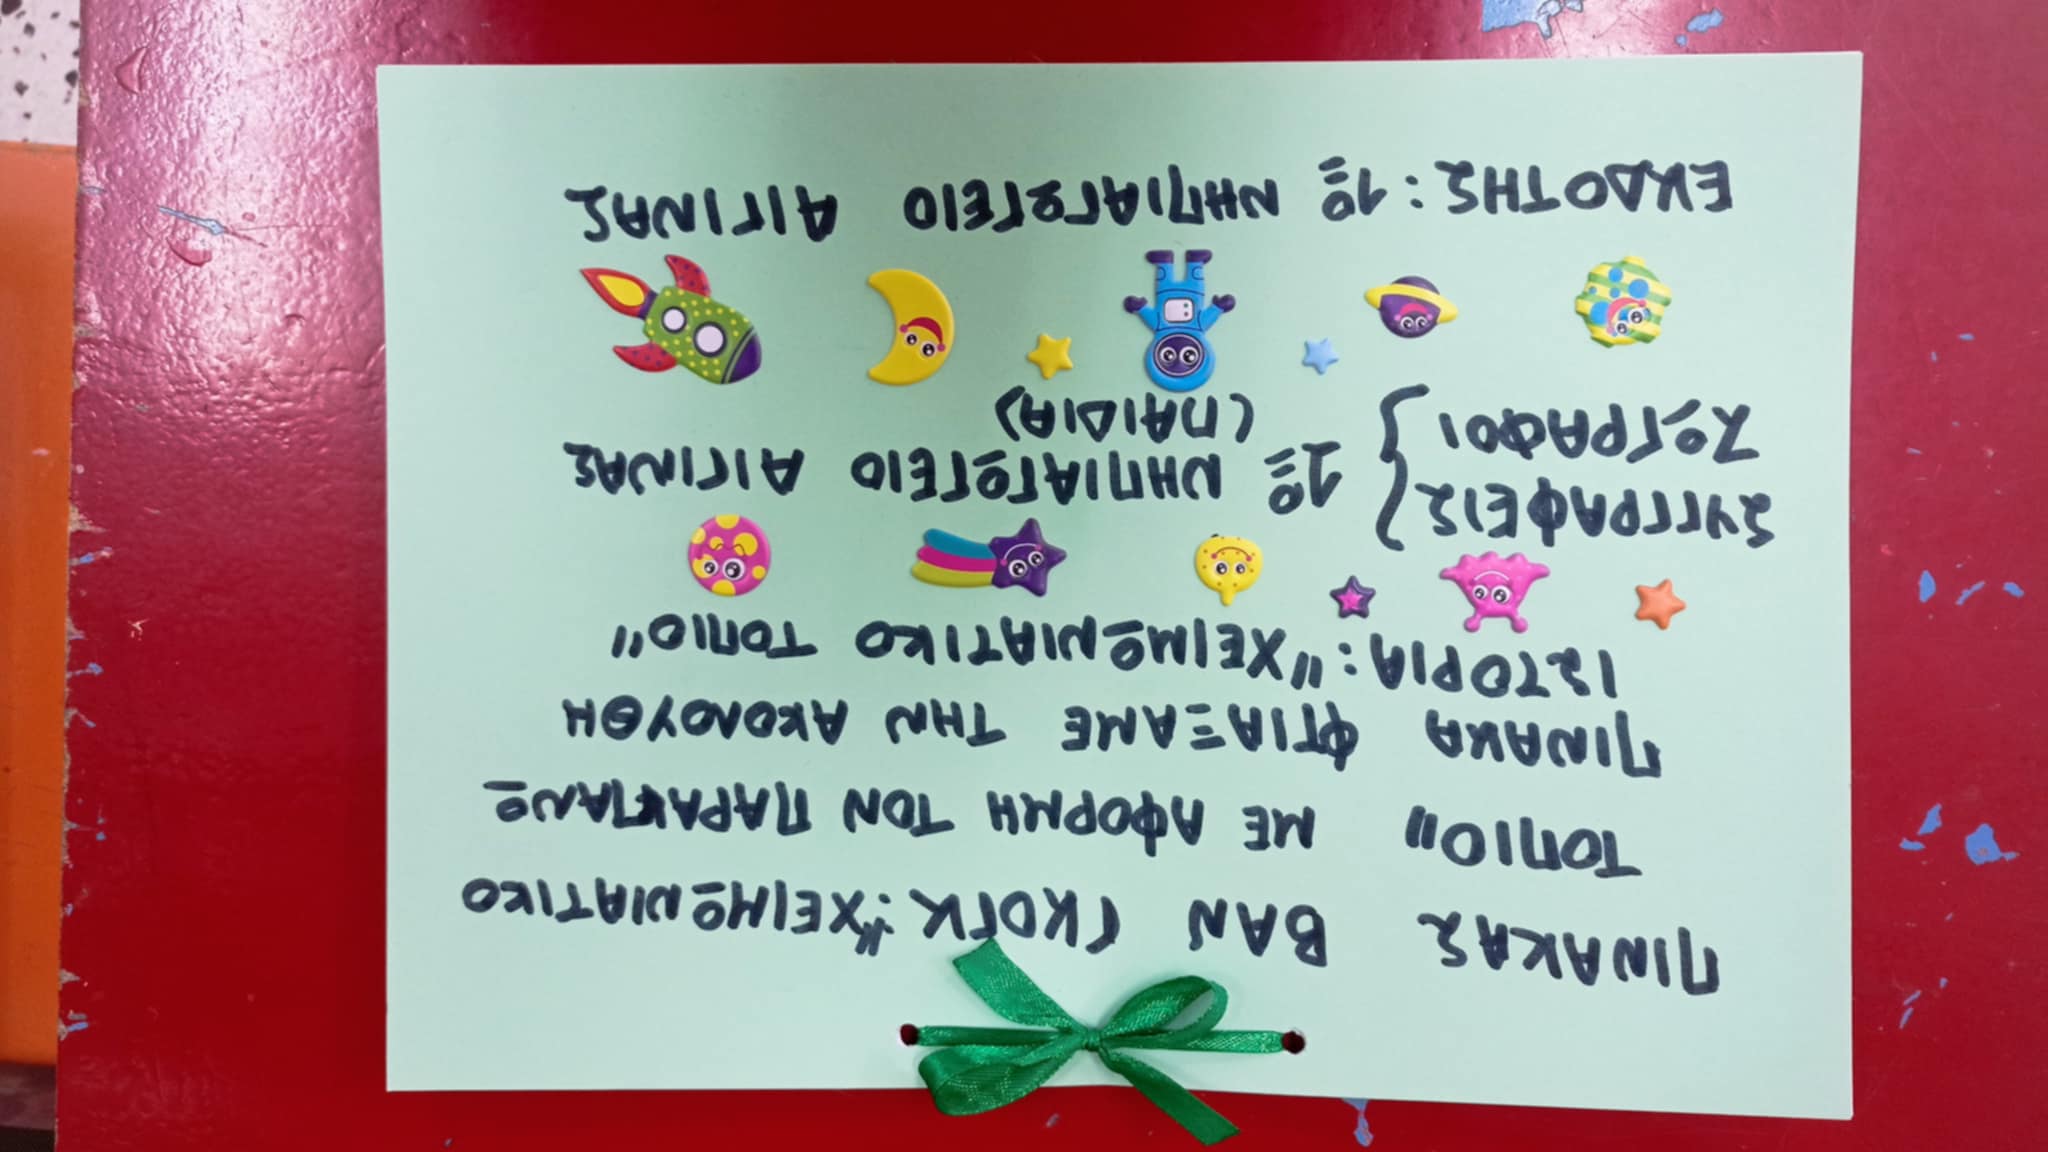 ΠΙΝΑΚΑΣ ΒΑΝ ΓΚΟΓΚ: "ΧΕΙΜΩΝΙΑΤΙΚΟ
ΤΟΠΙΟ" ΜΕ ΑΦΟΡΜΗ ΤΟΝ ΠΑΡΑΚΠΑΝΩ
ΠΙΝΑΚΑ ΦΤΙΑΞΑΜΕ ΤΗΝ ΑΚΟΛΟΥΘΗ
ΙΣΤΟΡΙΑ: "ΧΕΙΜΩΝΙΑΤΙΚΟ ΤΟΠΙΟ"
ΣΥΓΓΡΑΦΕΙΣ
ΖΩΓΡΑΦΟΙ } 1º ΝΗΠΙΑΓΩΓΕΙΟ ΑΙΓΙΝΑΣ
(ΠΑΙΔΙΑ)
ΕΚΔΟΤΗΣ: 1º ΝΗΠΙΑΓΩΓΕΙΟ ΑΙΓΙΝΑΣ